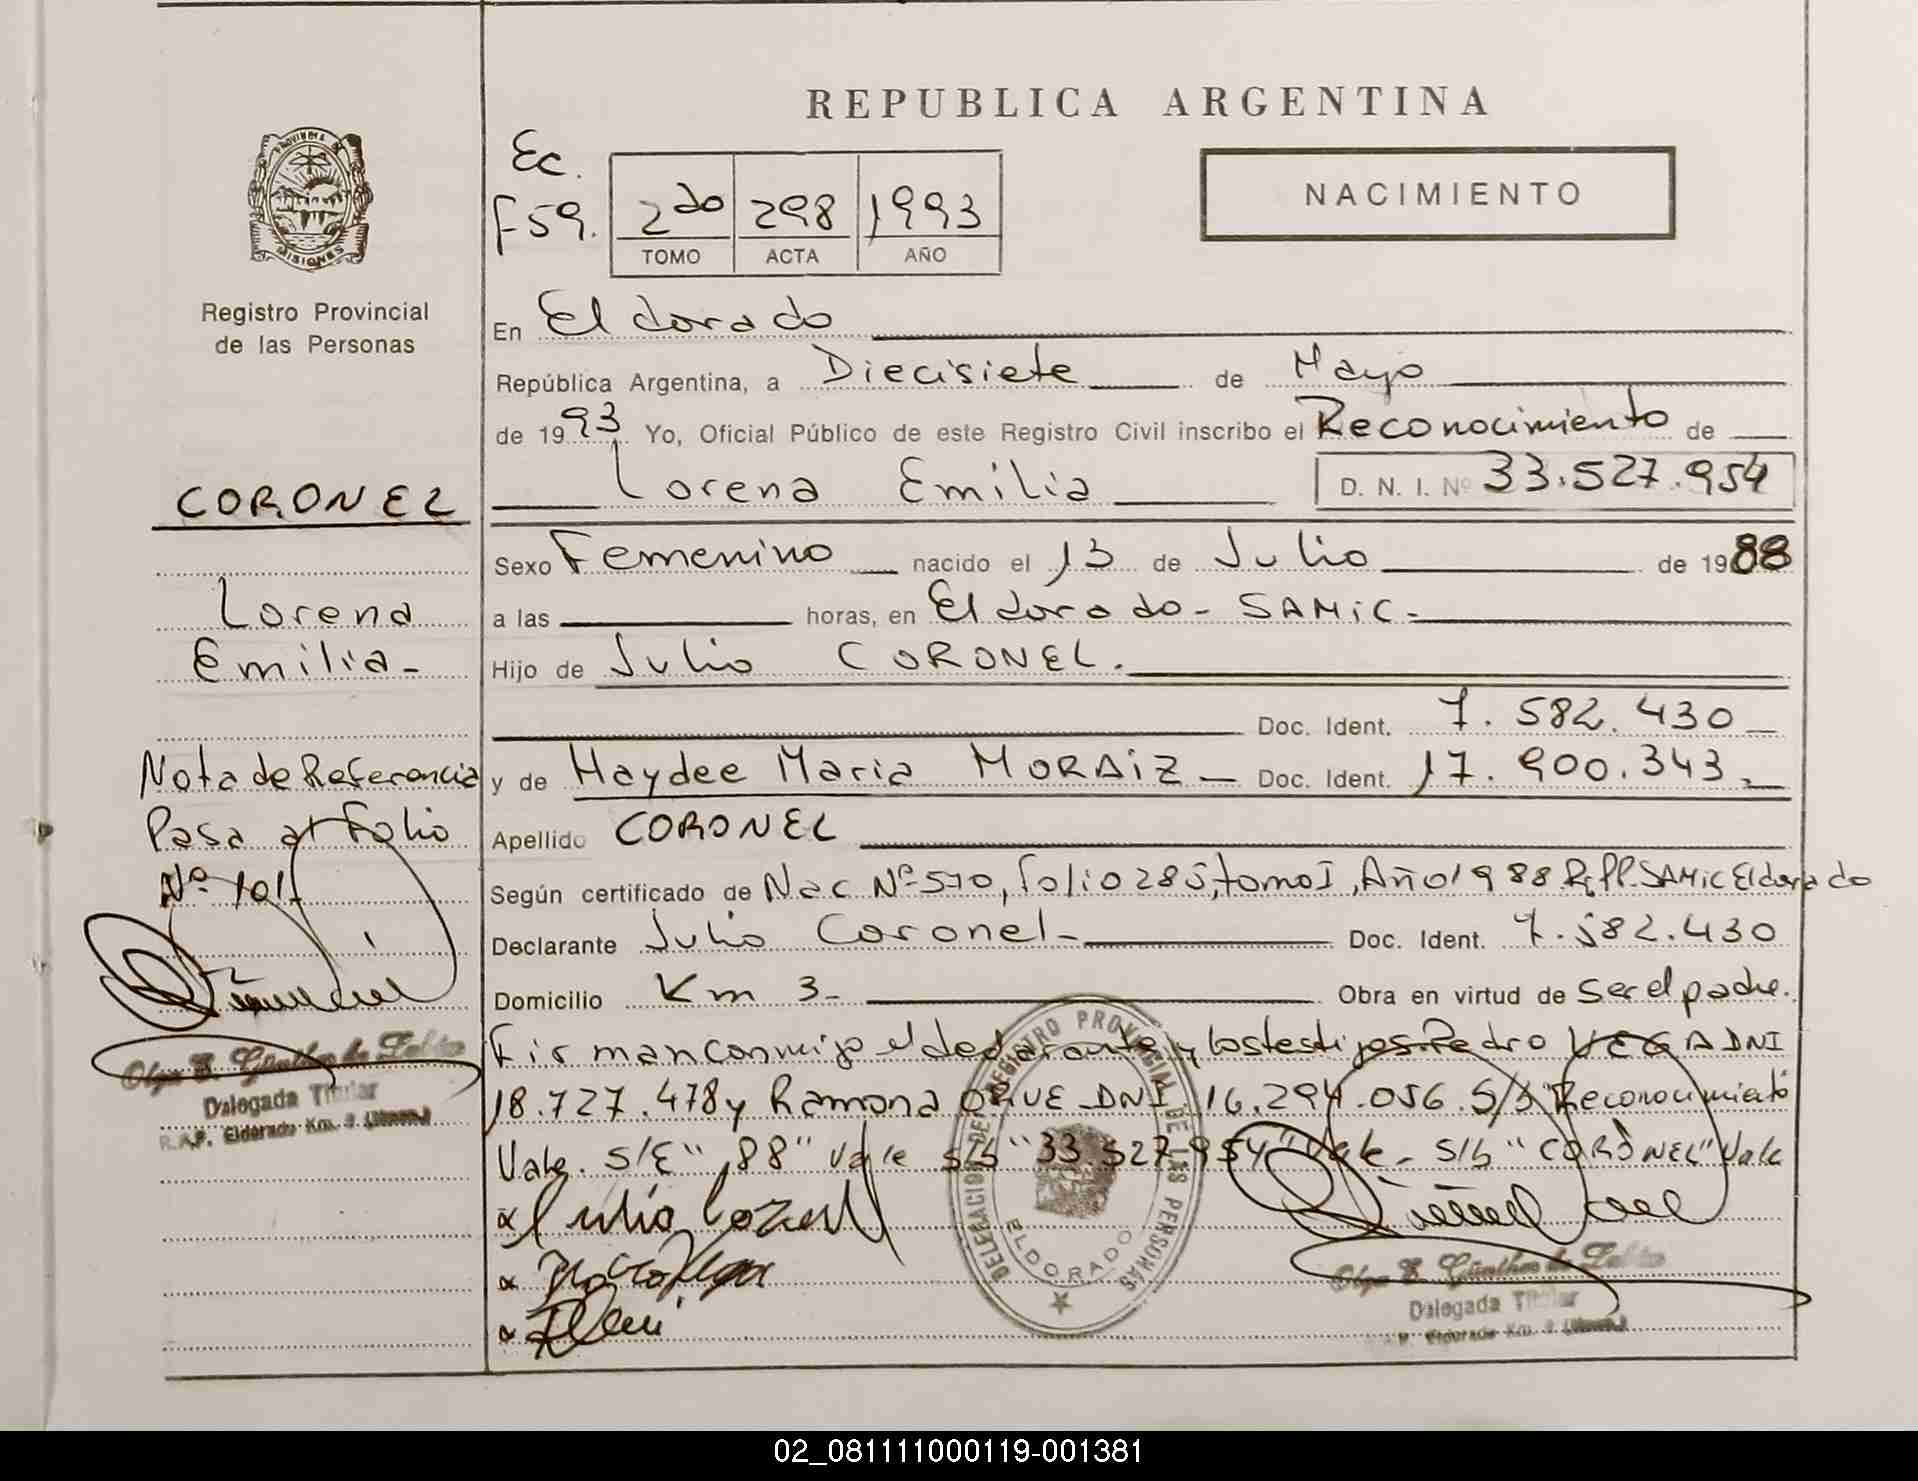 REPUBLICA ARGENTINA
PROVINCIA DE
MISIONES
Registro Provincial
de las Personas
Ec.
F 59.
2do 298 1993
TOMO ACTA AÑO
NACIMIENTO
En Eldorado
República Argentina, a Diecisiete de Mayo
de 1993 Yo, Oficial Público de este Registro Civil inscribo el Reconocimiento de
Lorena Emilia D. N. I. Nº 33.527.954
Sexo Femenino nacido el 13 de Julio de 1988
a las horas, en Eldorado - SAMiC -
Hijo de Julio CORONEL.
Doc. Ident. 7.582.430
y de Haydee Maria MORAiZ - Doc. Ident. 17.900.343
Apellido CORONEL
Según certificado de Nac Nº 570, folio 285, tomo I, Año 1988 R.pp. SAMiC Eldorado
Declarante Julio Coronel - Doc. Ident. 7.582.430
Domicilio Km 3 Obra en virtud de Ser el padre.
Firman conmigo el declarante y los testigos Pedro VEGA DNI
18.727.478 y Ramona ORUE DNI 16.294.056. S/b "Reconocimiento
Vale. S/E "88" Vale S/b "33.527.954" Vale - S/b "CORONEL" Vale
CORONEL
Lorena
Emilia -
Nota de Referencia
Pasa al Folio
Nº 101
Olga E. Günther de
Delegada Titular
R.P.P. Eldorado Km. 9 (Misiones)
Julio Coronel
DELEGACION DE REGISTRO PROVINCIAL DE LAS PERSONAS
ELDORADO
Olga E. Günther de
Delegada Titular
Eldorado Km. 9 (Misiones)
02_081111000119-001381